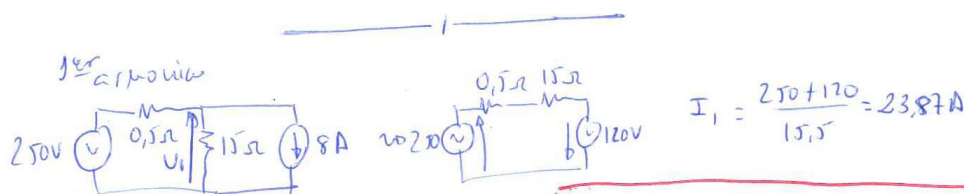 1
1er armonico
250V 0,5Ω U₁ 15Ω 8A
0,5Ω 15Ω
250 120V
I₁ = (250+120)/15,5 = 23,87A